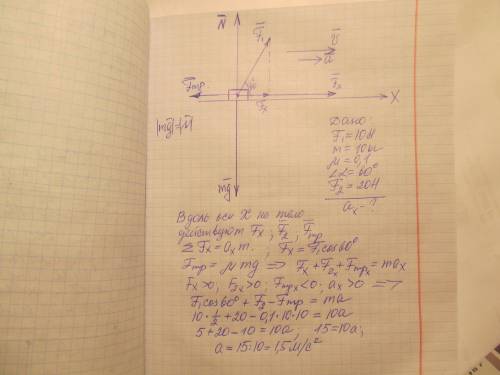 N̄
F̄₁
ῡ
ā
F̄тр
F̄ₓ
α
Fₓ
X
|mḡ|=|N̄|
mḡ
Дано:
F₁=10Н
m=10кг
μ=0,1
∠α=60°
F₂=20Н
aₓ-?
Вдоль оси X на тело
действуют Fₓ; F̄₂; F̄тр
ΣFₓ=aₓm. Fₓ=F₁cos60°
Fтр=μmg => Fₓ+F₂ₓ+Fтрₓ=maₓ
Fₓ>0; F₂ₓ>0; Fтрₓ<0; aₓ>0 =>
F₁cos60°+F₂-Fтр=ma
10·½+20-0,1·10·10=10a
5+20-10=10a; 15=10a;
a=15:10=1,5м/с²